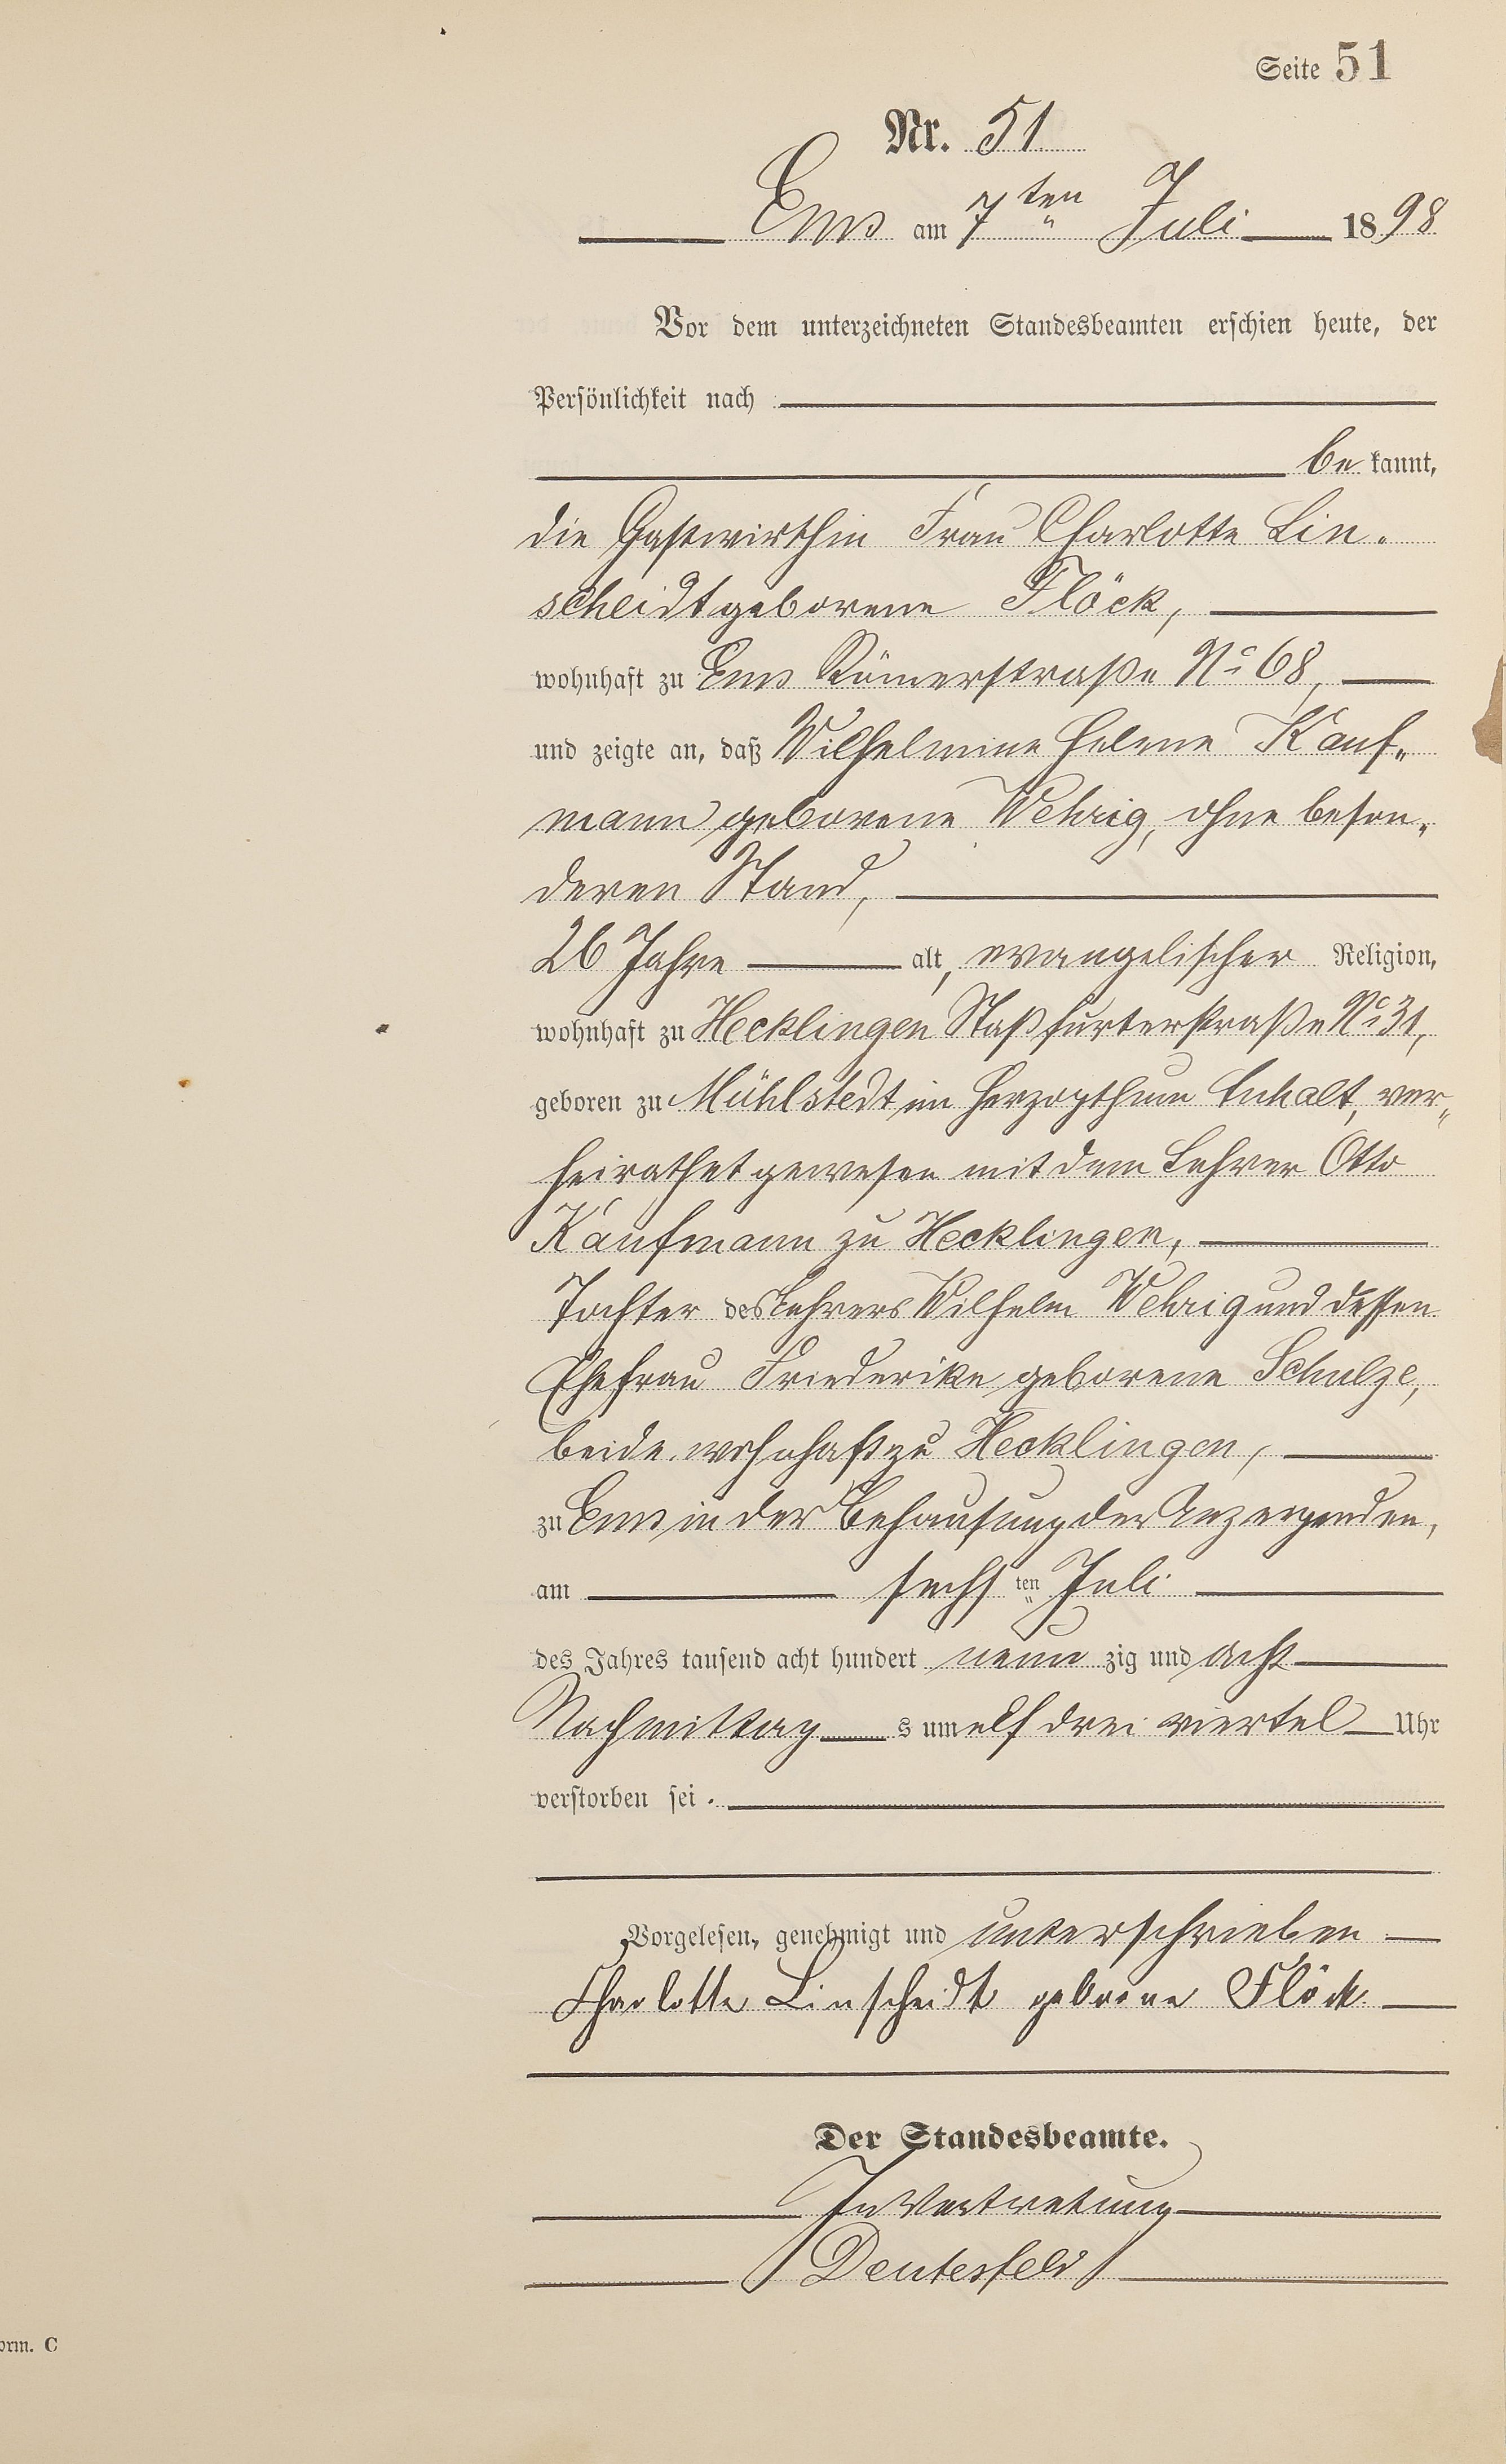 Seite 51
Nr. 51
Ems am 7ten Juli 1898
Vor dem unterzeichneten Standesbeamten erschien heute, der
Persönlichkeit nach
be kannt,
die Gastwirthin Frau Charlotte Lin-
scheidt geborene Flöck,
wohnhaft zu Ems Römerstraße No 68,
und zeigte an, daß Wilhelmine Helene Kauf-
mann geborene Wehrig, ohne beson-
deren Stand,
26 Jahre alt, evangelischer Religion,
wohnhaft zu Hecklingen Staßfurterstraße No 31,
geboren zu Mühlstedt im Herzogthum Anhalt, ver-
heirathet gewesen mit dem Lehrer Otto
Kaufmann zu Hecklingen,
Tochter des Lehrers Wilhelm Wehrig und dessen
Ehefrau Friederike geborene Schulze,
beide wohnhaft zu Hecklingen,
zu Ems in der Behausung der Anzeigenden,
am sechsten Juli
des Jahres tausend acht hundert neun zig und acht
Nachmittag s um elf drei viertel Uhr
verstorben sei.
Vorgelesen, genehmigt und unterschrieben
Charlotte Linscheidt geborene Flöck
Der Standesbeamte.
In Vertretung
Deutesfeld
orm. C